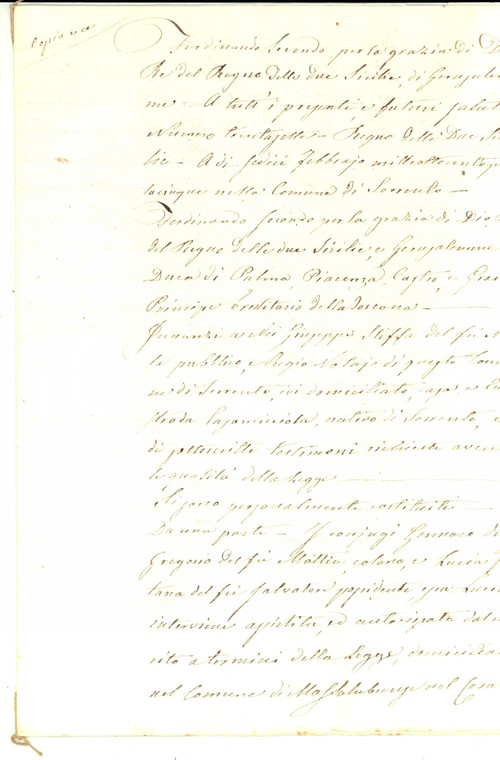 Copia
Ferdinando Secondo per la grazia di D
Re del Regno delle due Sicilie, di Gerusale
me - A tutt' i presenti, e futuri salu
Numero trentasette - Regno delle Due Si
lie - A dì sedici Febbrajo milleottocento
tacinque nella Comune di Sorrento -
Ferdinando Secondo per la grazia di Dio
del Regno delle due Sicilie, e Gerusalemme
Duca di Parma, Piacenza, Castro, e Gran
Principe Ereditario della Toscana -
Innanzi a Noi Giuseppe del fu
la pubblico, Regio Notajo di questo Comu
ne di Sorrento, ivi domiciliato,
Strada nativo di Sorrento, e
di testimoni richieste aven
le qualità della Legge
Si sono personalmente costituiti -
Da una parte - I conjugi Gennaro de
Gregorio del fu Mattia, colono, e Lucia
tana del fu Salvatore possidente, essa Luci
interviene assistita, ed autorizzata dal
rito a termini della Legge, domicilia
nel Comune di Massalubrense nel Casa